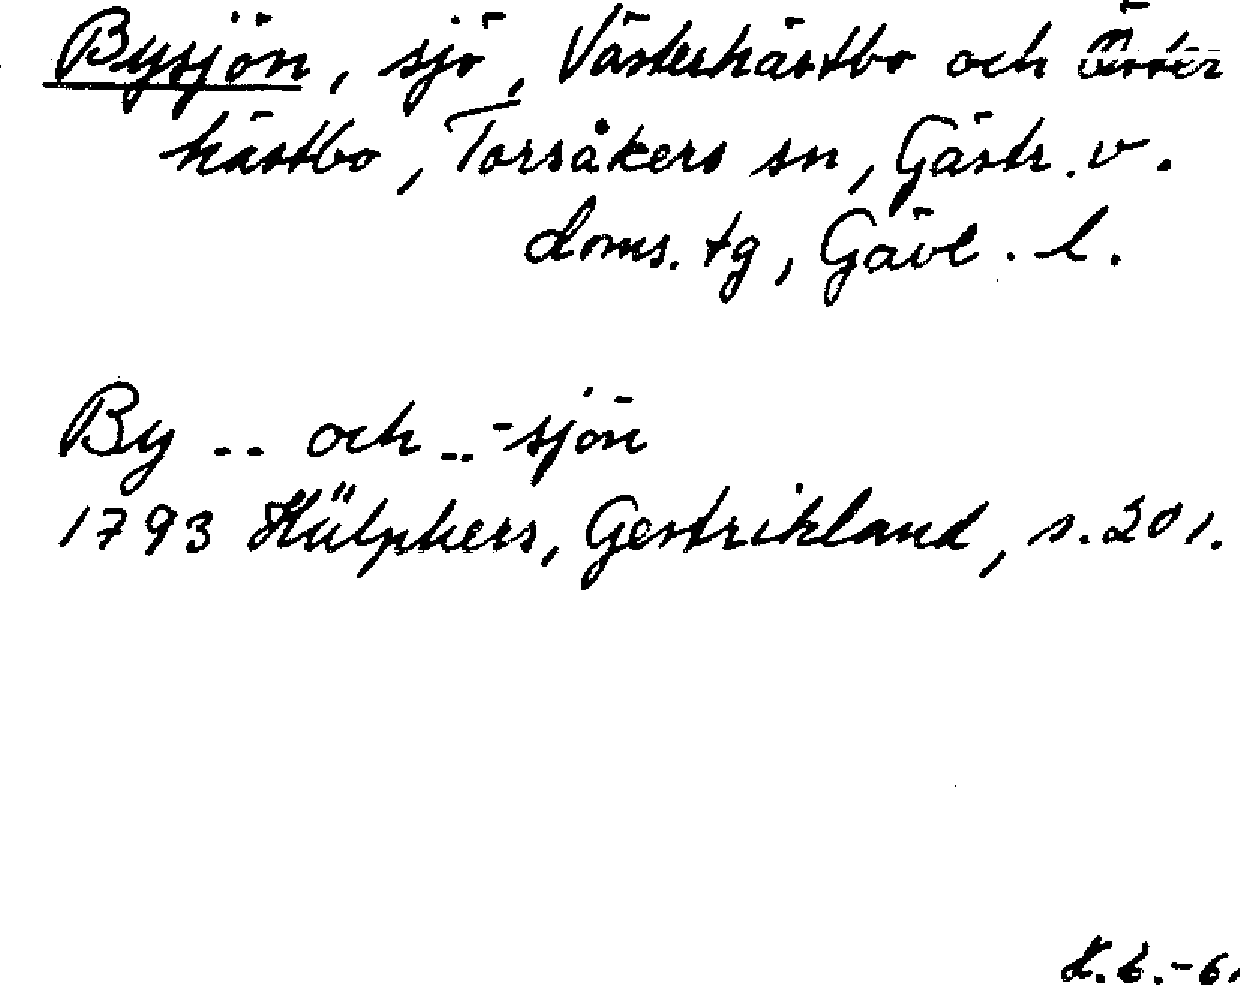 Bysjön, sjö, Västerhästbo och Öster
hästbo, Torsåkers sn, Gästr. v.
doms. tg, Gävl. l.
By -- och -- -sjön
1793 Hülphers, Gestrikland, s. 201.